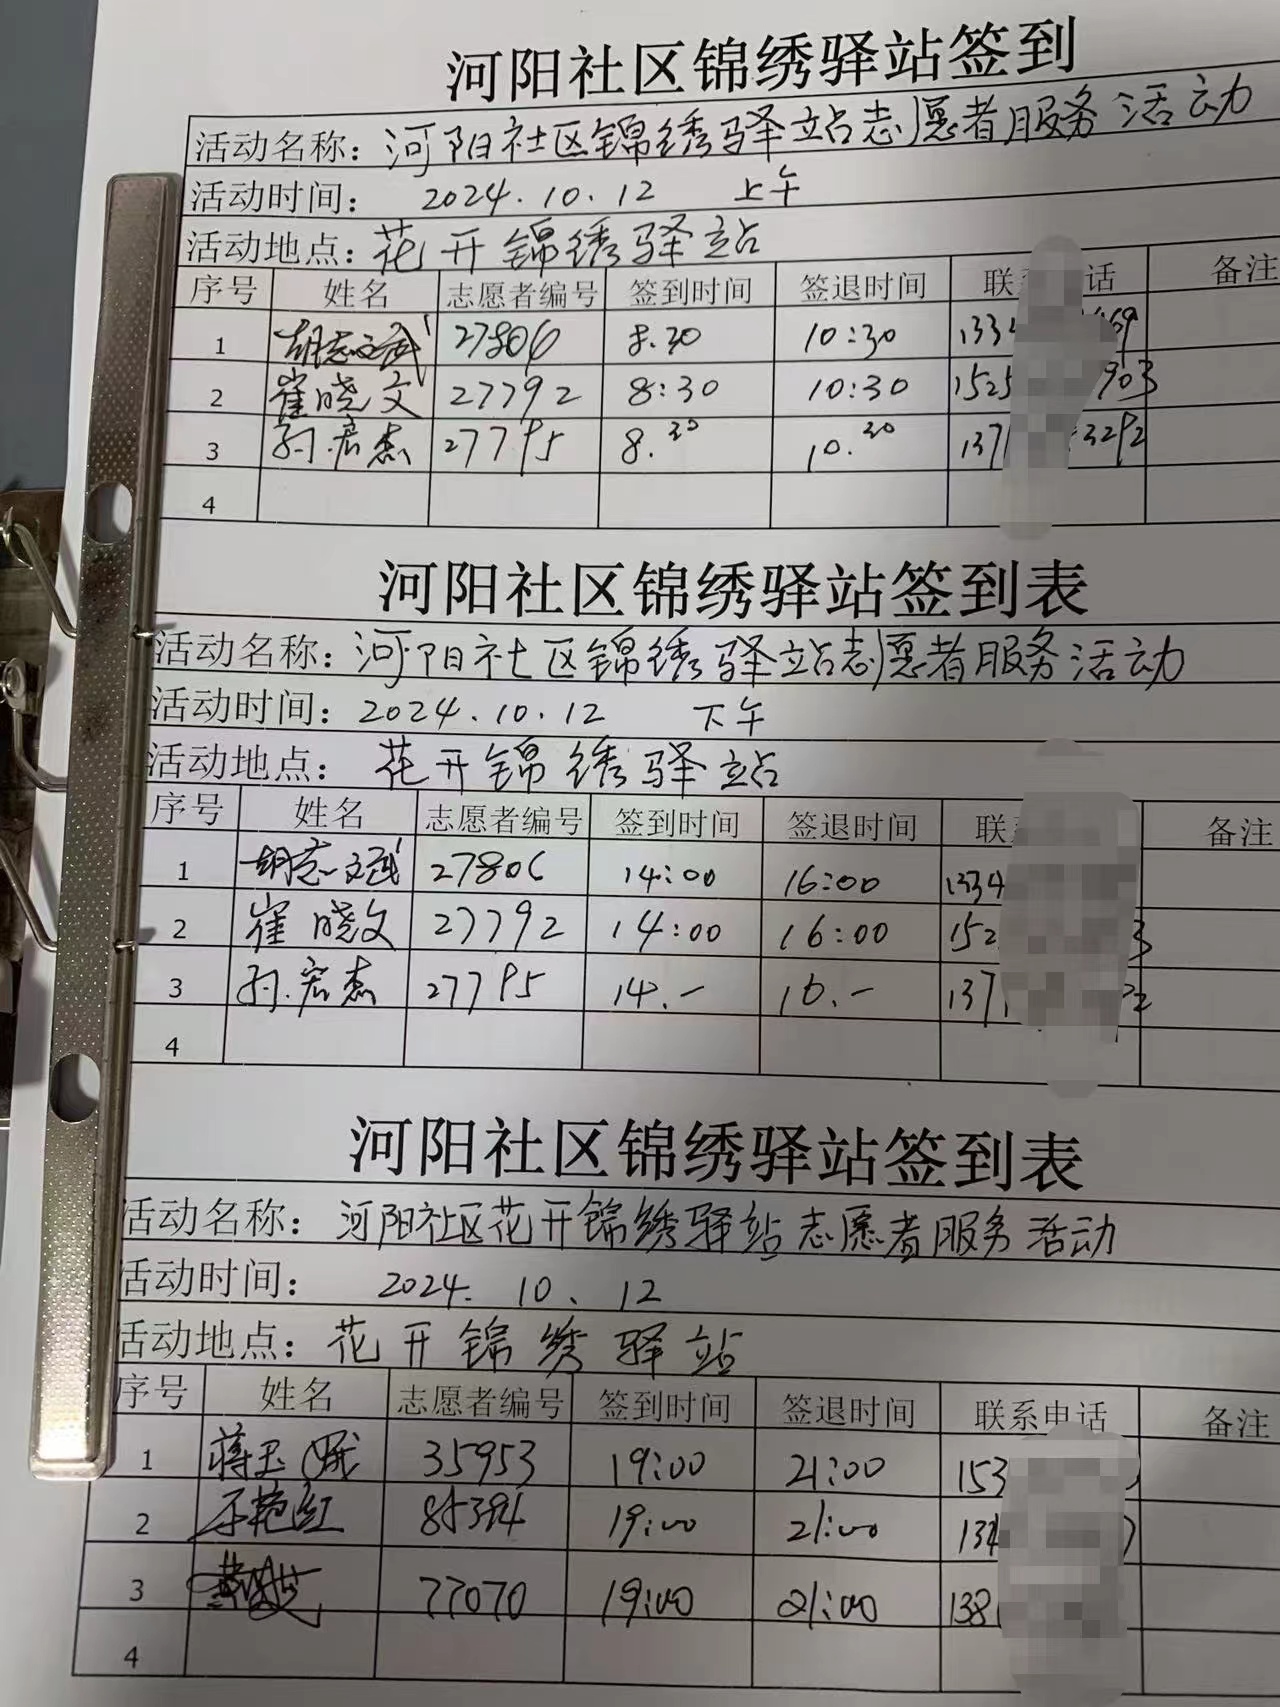 河阳社区锦绣驿站签到
活动名称：河阳社区锦绣驿站志愿者服务活动
活动时间： 2024.10.12 上午
活动地点：花开锦绣驿站
序号 姓名 志愿者编号 签到时间 签退时间 联 话 备注
1 胡志斌 27806 8.30 10:30 133
2 崔晓文 27792 8:30 10:30 1525 903
3 孙宏杰 27795 8.30 10.30 137 3292
4
河阳社区锦绣驿站签到表
活动名称：河阳社区锦绣驿站志愿者服务活动
活动时间：2024.10.12 下午
活动地点： 花开锦绣驿站
序号 姓名 志愿者编号 签到时间 签退时间 联 备注
1 27806 14:00 16:00 1334
2 崔晓文 27792 14:00 16:00 152 3
3 孙宏杰 27795 14.- 16.- 137
4
河阳社区锦绣驿站签到表
活动名称：河阳社区花开锦绣驿站志愿者服务活动
活动时间： 2024.10.12
活动地点：花开锦绣驿站
序号 姓名 志愿者编号 签到时间 签退时间 联系电话 备注
1 蒋玉娥 35953 19:00 21:00 153
2 艳红 85394 19:00 21:00 13
3 77070 19:00 21:00 138
4